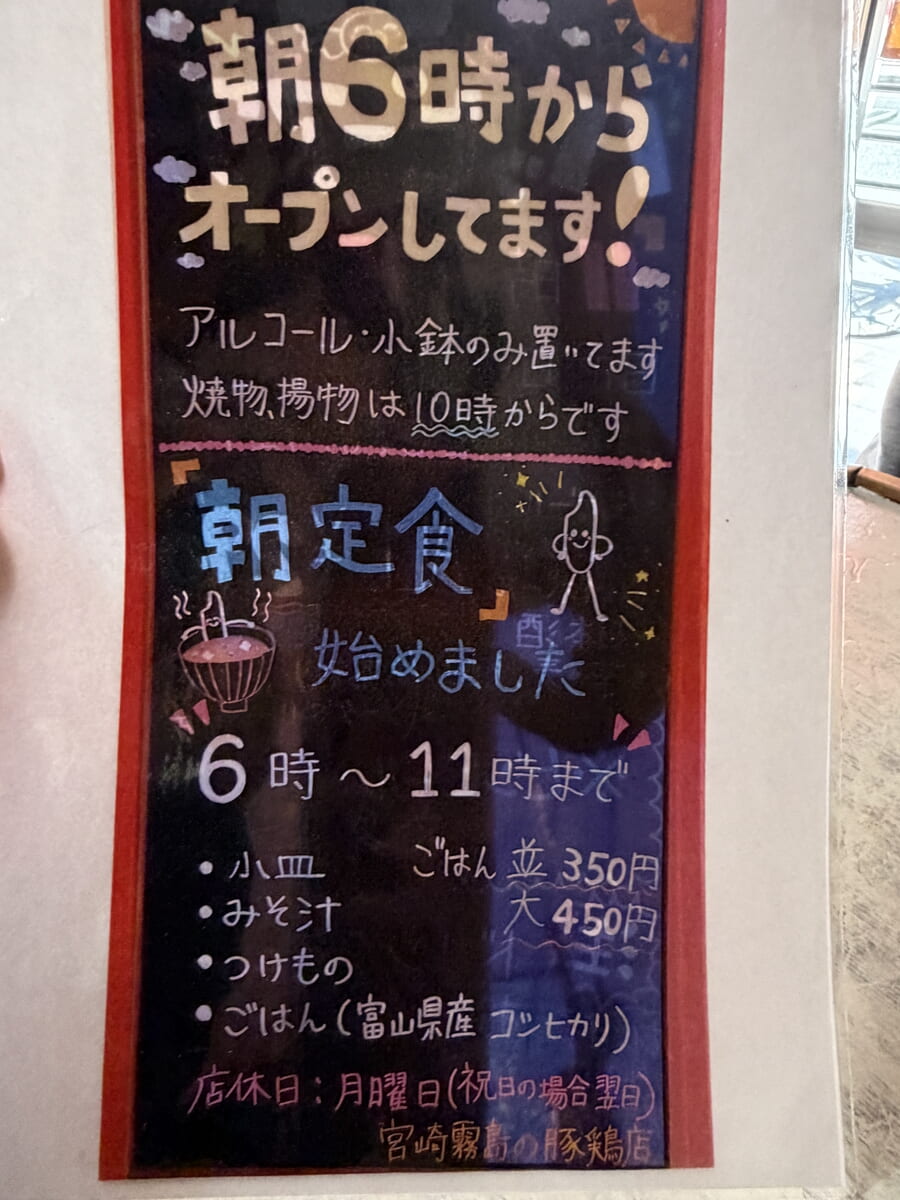 朝6時から
オープンしてます!
アルコール・小鉢のみ置いてます
焼物、揚物は10時からです
『朝定食』
始めました
6時〜11時まで
・小皿 ごはん 並 350円
・みそ汁 大 450円
・つけもの
・ごはん(富山県産 コシヒカリ)
店休日:月曜日(祝日の場合翌日)
宮崎霧島の豚鶏店